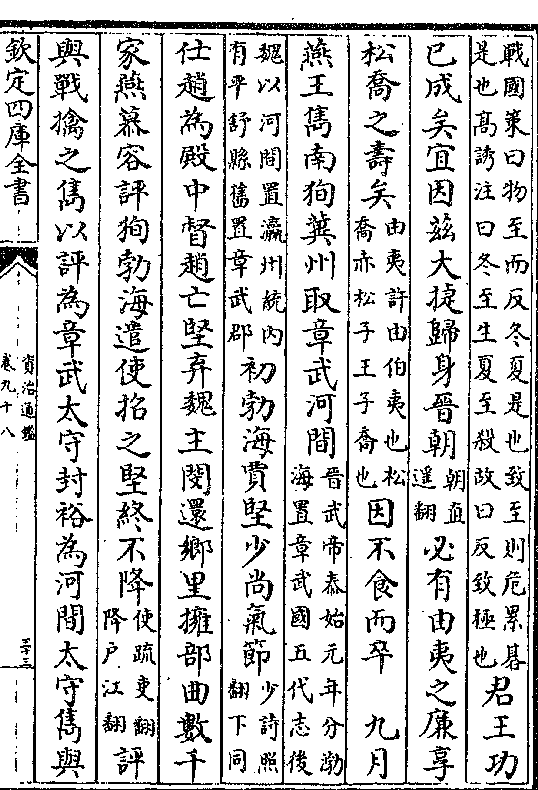 戰國策曰物至而反冬夏是也致至則危累碁
是也髙誘注曰冬至生夏至殺故曰反致極也
君王功
已成矣宜因兹大捷歸身晉朝
朝直
遥翻
必有由夷之廉享
松喬之壽矣
由夷許由伯夷也松
喬赤松子王子喬也
因不食而卒 九月
燕王儁南狥冀州取章武河間
晉武帝泰始元年分渤
海置章武國五代志後
魏以河間置瀛州統内
有平舒縣舊置章武郡
初勃海賈堅少尚氣節
少詩照
翻下同
仕趙為殿中督趙亡堅弃魏主閔還鄉里擁部曲數千
家燕慕容評狥勃海遣使招之堅終不降
使疏吏翻
降户江翻
評
與戰擒之儁以評為章武太守封裕為河間太守儁與
欽定四庫全書
資治通鑑
卷九十八
二十三